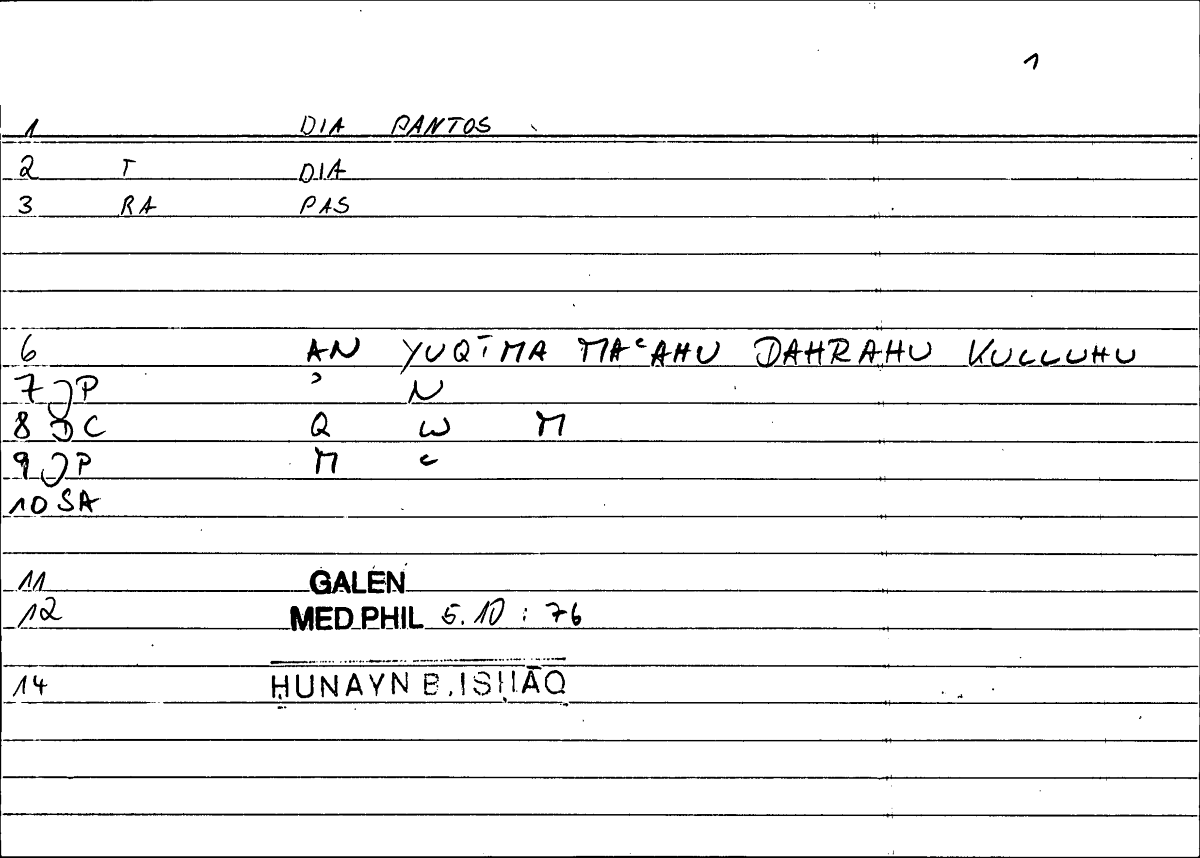 1
1 DIA PANTOS
2 T DIA
3 RA PAS
6 AN YUQĪMA MAʿAHU DAHRAHU KULLUHU
7 JP ʾ N
8 DC Q W M
9 JP M ʿ
10 SA
11 GALEN
12 MED PHIL 5.10 : 76
14 ḤUNAYN B. ISḤĀQ